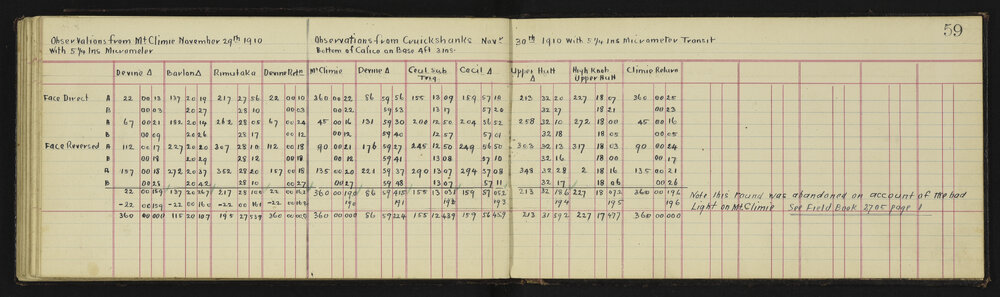 59
Observations from Mt Climie November 29th 1910
With 5 1/4 Ins Micrometer
Observations from Cruickshanks Nov. 30th 1910 with 5 1/4 Ins Micrometer Transit
Bottom of Calico on Base 4ft 3 Ins.
Devine Δ Barton Δ Rimutaka Devine Retn Mt Climie Devine Δ Cecil Sub Trig. Cecil Δ Upper Hutt Δ High Knob Upper Hutt Climie Return
Face Direct A 22 00 13 137 20 19 217 27 56 22 00 10 360 00 22 86 59 56 155 13 09 159 57 19 213 32 20 227 18 07 360 00 25
B 00 03 20 27 28 10 00 03 00 22 59 53 13 17 57 20 32 27 18 21 00 23
A 67 00 21 182 20 14 262 28 05 67 00 24 45 00 16 131 59 30 200 12 50 204 56 52 258 32 10 272 18 00 45 00 16
B 00 09 20 26 28 17 00 12 59 40 12 57 57 01 32 18 18 05 00 05
Face Reversed A 112 00 17 227 20 20 307 28 10 112 00 18 90 00 21 176 59 27 245 12 50 249 56 50 303 32 13 317 18 03 90 00 24
B 00 18 20 29 28 12 00 18 00 12 59 41 13 08 57 10 32 16 18 00 00 17
A 157 00 18 272 20 37 352 28 20 157 00 18 135 00 20 221 59 37 290 13 07 294 57 08 348 32 28 2 18 16 135 00 21
B 00 28 20 42 28 10 00 27 00 27 59 48 13 07 57 11 32 17 18 06 00 26
22 00 159 137 20 267 217 28 100 22 00 162 360 00 190 86 59 415 155 13 031 159 57 052 213 32 186 227 18 072 360 00 196
-22 00 159 -22 00 160 -22 00 161 -22 00 162 190 191 192 193 194 195 196
360 00 000 115 20 107 195 27 539 360 00 000 360 00 000 86 59 224 155 12 439 159 56 459 213 31 592 227 17 477 360 00 000
Note this round was abandoned on account of the bad
Light on Mt Climie See Field Book 2705 page 1